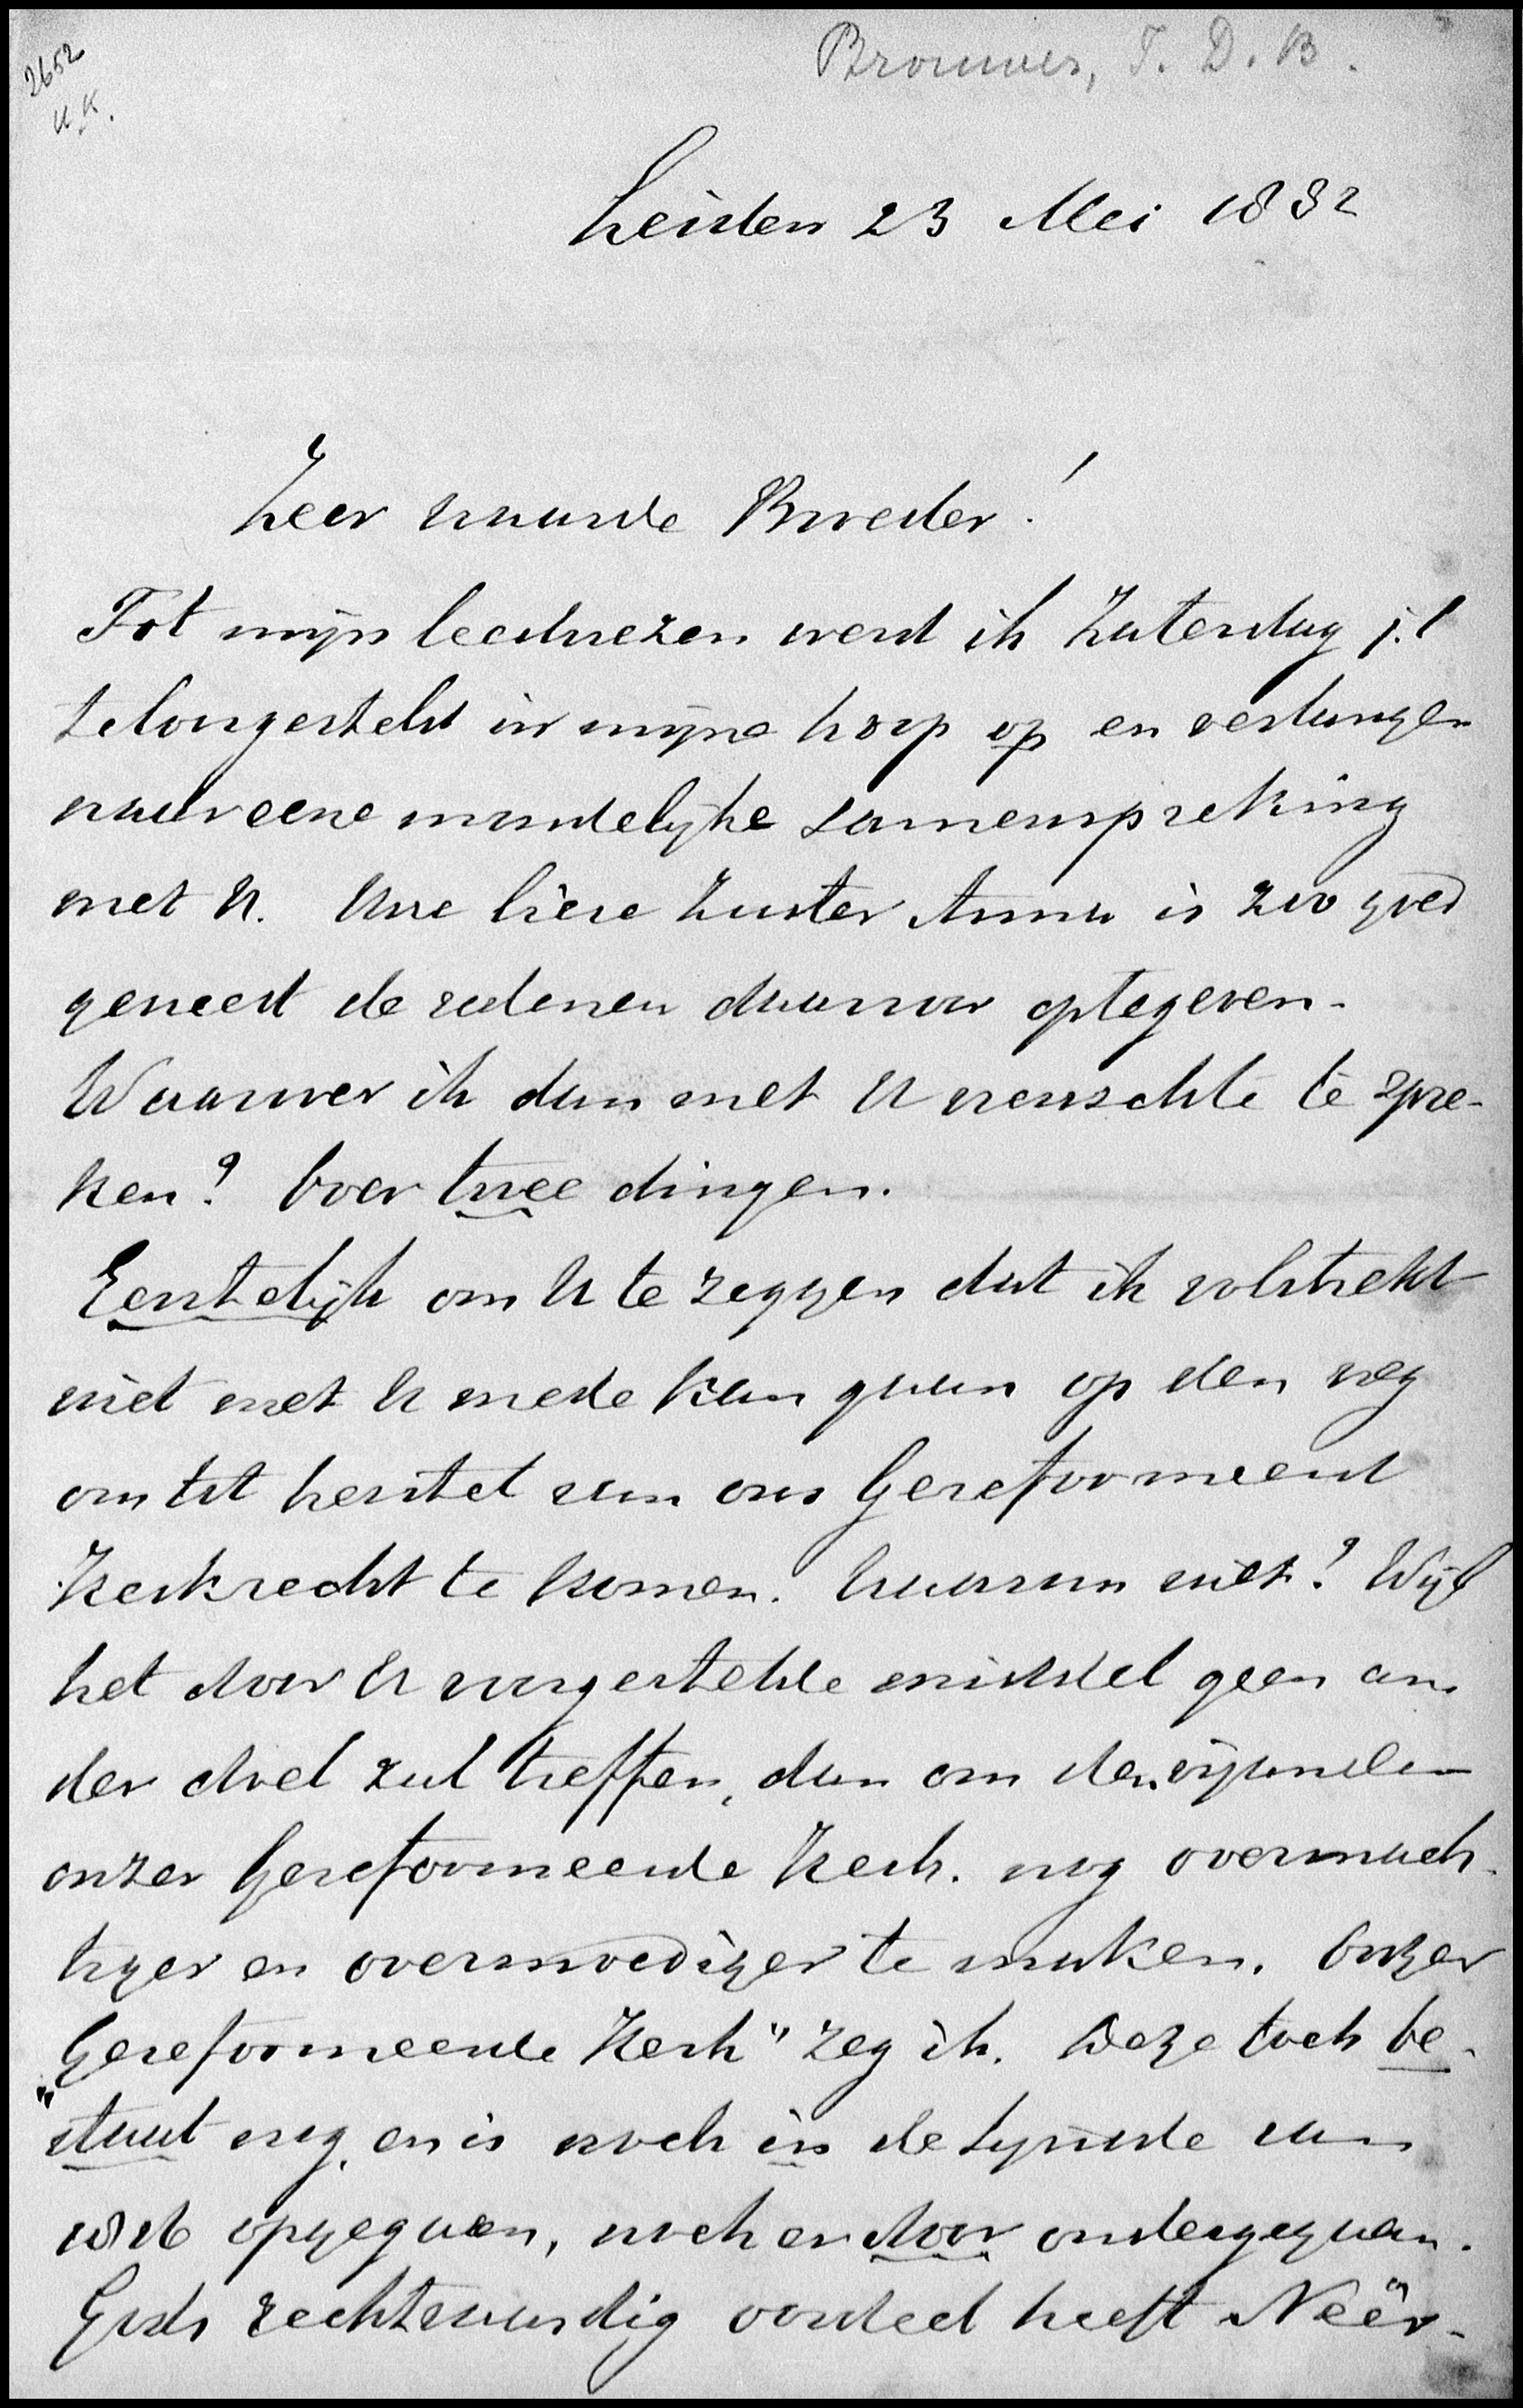 2652
U.K.
Brouwer, T. D. B.
Leiden 23 Mei 1882
Zeer waarde Broeder!
Tot mijn leedwezen werd ik Zaterdag j.l
teleurgesteld in mijne hoop op en verlangen
naar eene mondelijke samenspreking
met U. Uwe lieve Zuster Anna is zoo goed
geweest de redenen daarvan optegeven.
Waarover ik dan met U wenschte te spre-
ken? Over twee dingen.
Eerstelijk om U te zeggen dat ik volstrekt
niet met U mede kan gaan op den weg
om tot herstel van ons Gereformeerd
Kerkrecht te komen. Waarom niet? Wijl
het door U voorgestelde middel geen an
der doel zal treffen, dan om de vijanden
onzer Gereformeerde Kerk. nog overmach-
tiger en overmoediger te maken. Onzer
"Gereformeerde Kerk" zeg ik. Deze toch be-
staat nog, en is noch in de Synode van
1816 opgegaan, noch er door ondergegaan.
Gods rechtvaardig oordeel heeft Neêr-